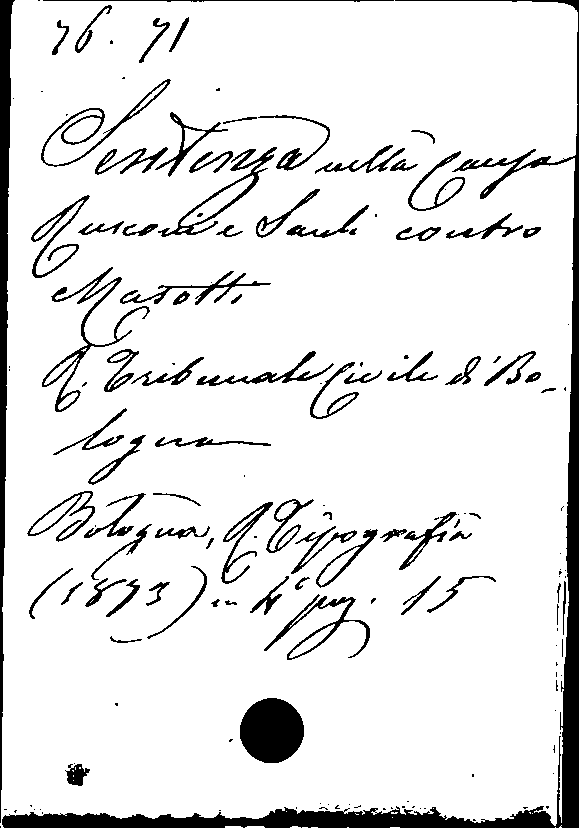 76. 71
Sentenza nella Causa
Rusconi e Sauli contro
Masotti
R. Tribunale Civile di Bo-
logna
Bologna, R. Tipografia
(1873) in 4° pag. 15